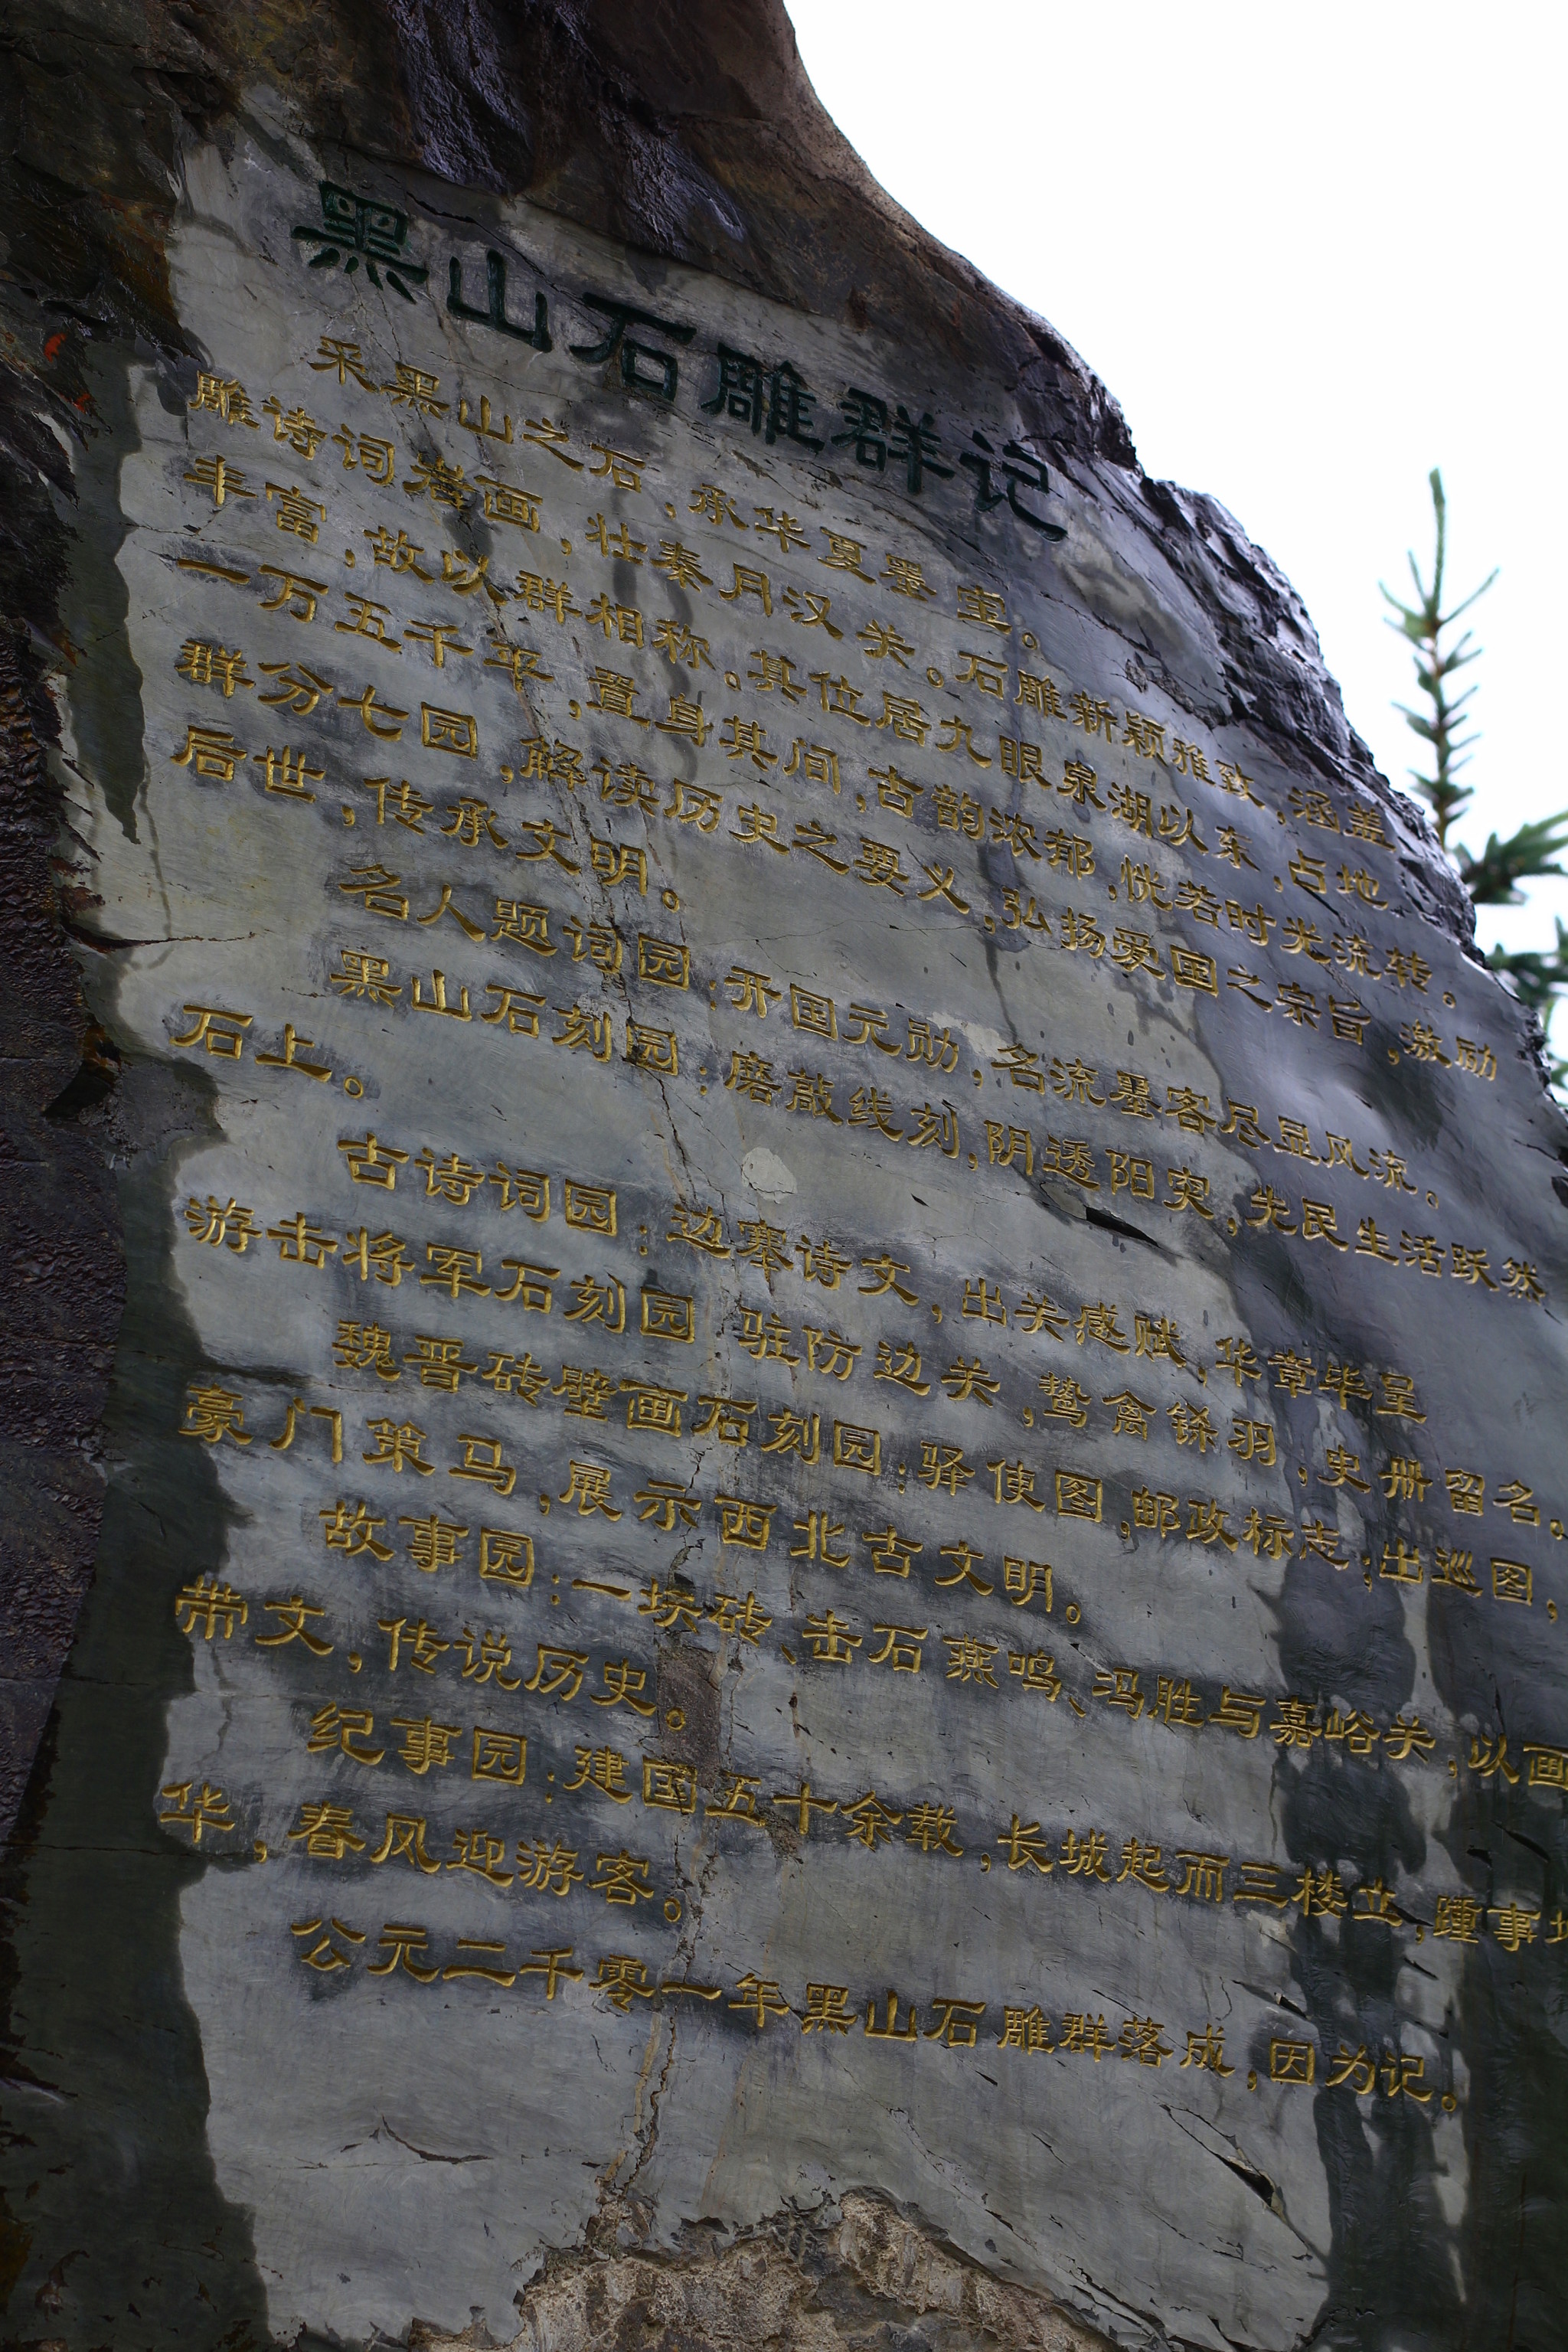 黑山石雕群记
采黑山之石,承华夏墨宝。石雕新颖雅致,涵盖
雕诗词岩画,壮秦月汉关。其位居九眼泉湖以东,占地
丰富,故以群相称。
一万五千平,置身其间,古韵浓郁,恍若时光流转。
群分七园,解读历史之要义,弘扬爱国之宗旨,激励
后世,传承文明。
名人题词园:开国元勋,名流墨客尽显风流。
黑山石刻园:磨敲线刻,阴透阳突,先民生活跃然
石上。
古诗词园:边塞诗文,出关感赋,华章毕呈
游击将军石刻园 驻防边关,鸷禽铩羽,史册留名。
魏晋砖壁画石刻园:驿使图,邮政标志;出巡图,
豪门策马,展示西北古文明。
故事园:一块砖、击石燕鸣、冯胜与嘉峪关,以画
带文,传说历史。
纪事园:建国五十余载,长城起而三楼立,踵事
华,春风迎游客。
公元二千零一年黑山石雕群落成,因为记。